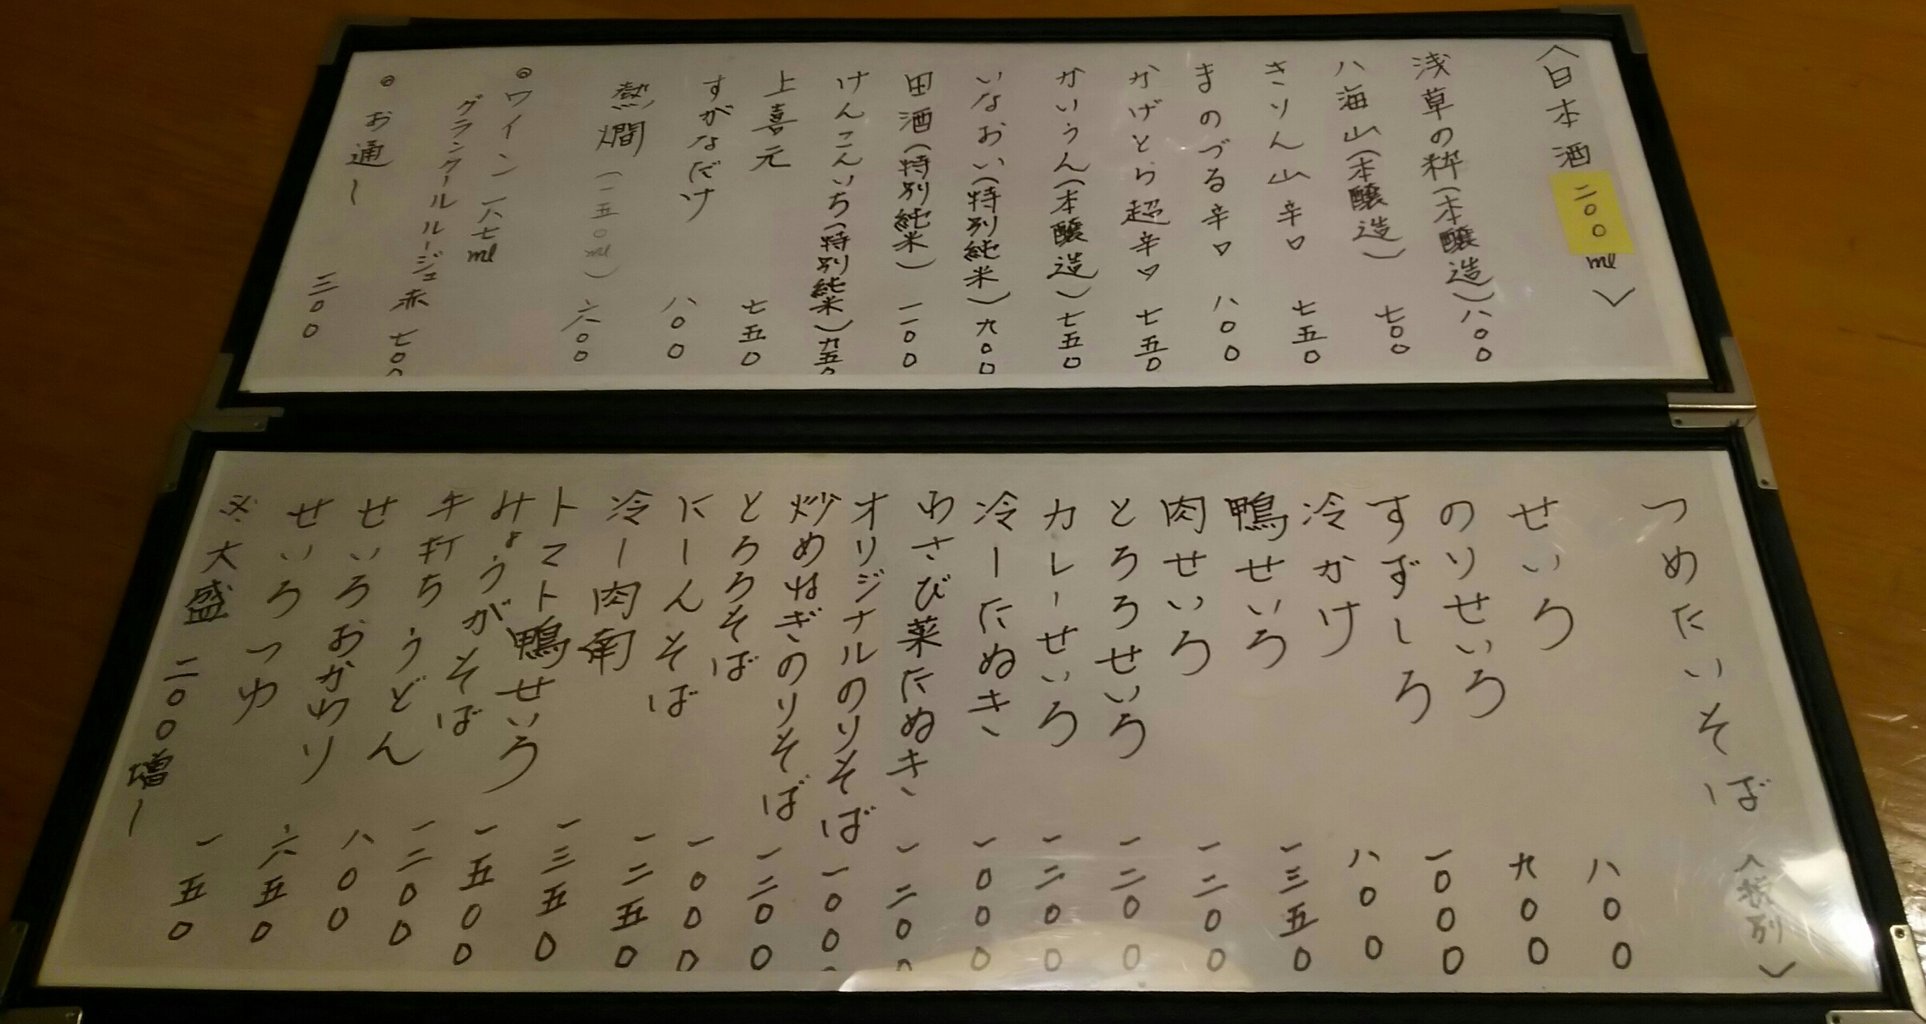 〈日本酒 二〇〇ml〉
浅草の粋(本醸造)八〇〇
八海山(本醸造)七〇〇
きりん山辛口 七五〇
まのづる辛口 八〇〇
かげとら超辛口 七五〇
かいうん(本醸造)七五〇
いなおい(特別純米)九〇〇
田酒(特別純米)一一〇〇
けんこんいち(特別純米)九五〇
上喜元 七五〇
すがなだけ 八〇〇
熱燗(一五〇ml)六〇〇
◎ワイン 一八七ml
グランクールルージュ赤 七〇〇
◎お通し 三〇〇
つめたいそば〈税別〉
せいろ 八〇〇
のりせいろ 九〇〇
すずしろ 一〇〇〇
冷かけ 八〇〇
鴨せいろ 一三五〇
肉せいろ 一二〇〇
とろろせいろ 一二〇〇
カレーせいろ 一二〇〇
冷したぬき 一〇〇〇
わさび菜たぬき 一二〇〇
オリジナルのりそば 一〇〇〇
炒めねぎのりそば 一二〇〇
とろろそば 一〇〇〇
にしんそば 一二五〇
冷し肉南 一三五〇
トマト鴨せいろ 一五〇〇
みょうがそば 一二〇〇
手打ちうどん 八〇〇
せいろおかわり 六五〇
せいろつゆ 一五〇
※大盛 二〇〇増し